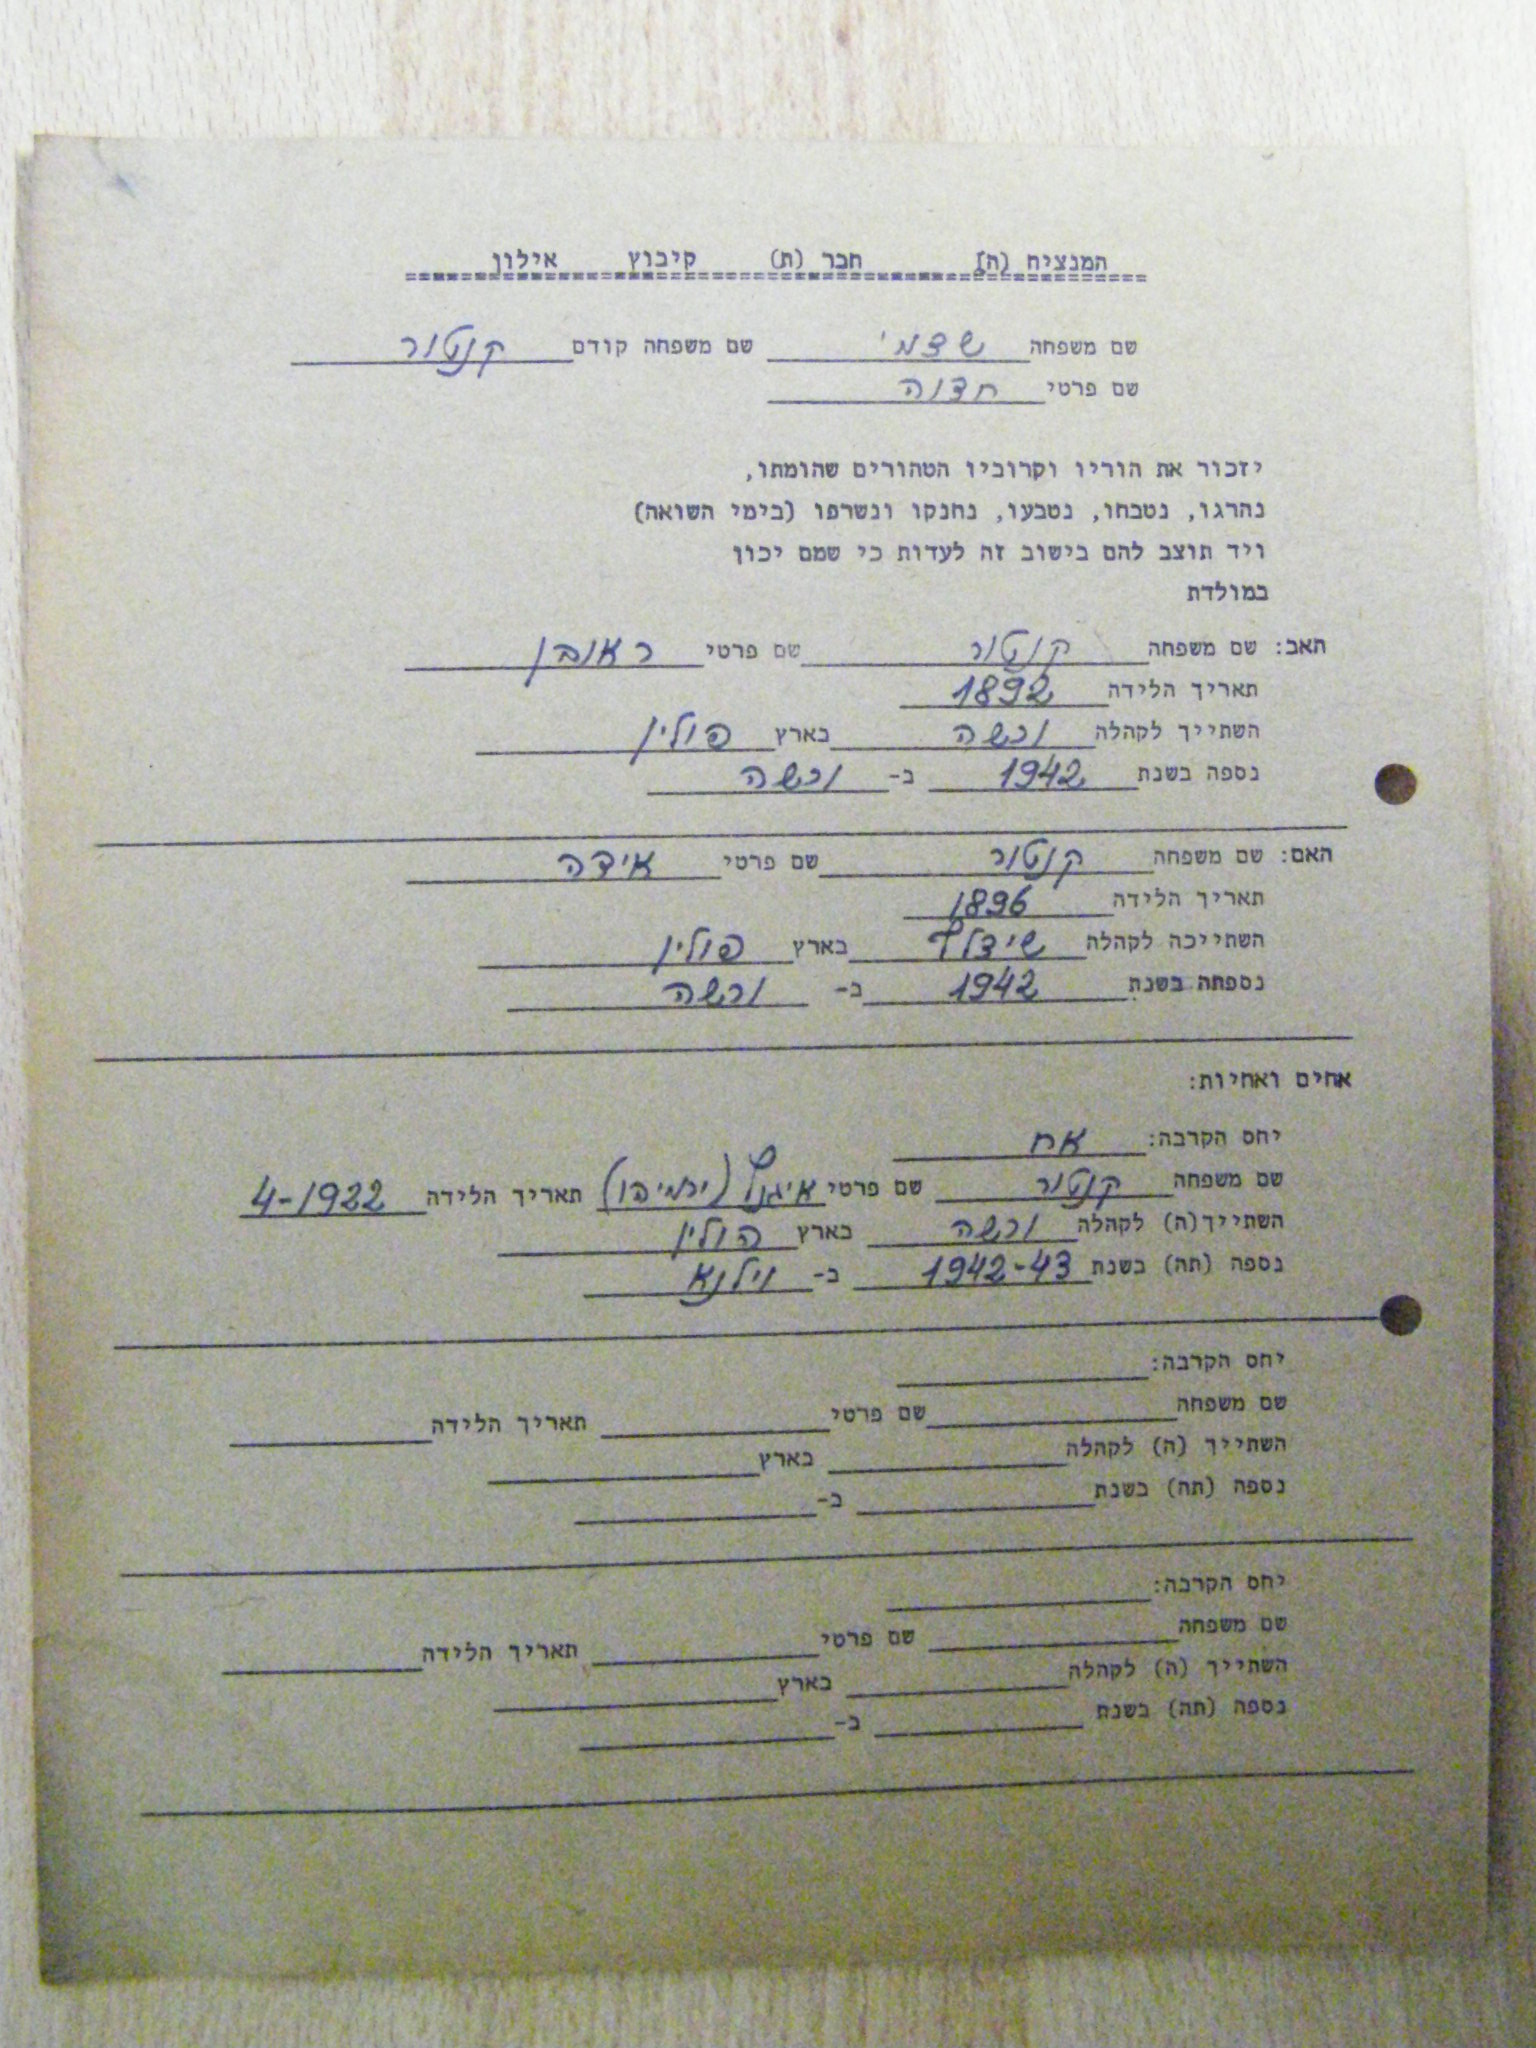 המנציח (ה) חבר (ת) קיבוץ אילון
שם משפחה שדמי שם משפחה קודם קנטור
שם פרטי חדוה
יזכור את הוריו וקרוביו הטהורים שהומתו,
נהרגו, נטבחו, נטבעו, נחנקו ונשרפו (בימי השואה)
ויד תוצב להם בישוב זה לעדות כי שמם יכון
במולדת
האב: שם משפחה קנטור שם פרטי ראובן
תאריך הלידה 1892
השתייך לקהלה ורשה בארץ פולין
נספה בשנת 1942 ב- ורשה
האם: שם משפחה קנטור שם פרטי אידה
תאריך הלידה 1896
השתייכה לקהלה שידלץ בארץ פולין
נספתה בשנת 1942 ב- ורשה
אחים ואחיות:
יחס הקרבה: אח
שם משפחה קנטור שם פרטי איגנץ (ירמיהו) תאריך הלידה 4-1922
השתייך(ה) לקהלה ורשה בארץ פולין
נספה (תה) בשנת 1942-43 ב- וילנא
יחס הקרבה:
שם משפחה שם פרטי תאריך הלידה
השתייך (ה) לקהלה בארץ
נספה (תה) בשנת ב-
יחס הקרבה:
שם משפחה שם פרטי תאריך הלידה
השתייך (ה) לקהלה בארץ
נספה (תה) בשנת ב-